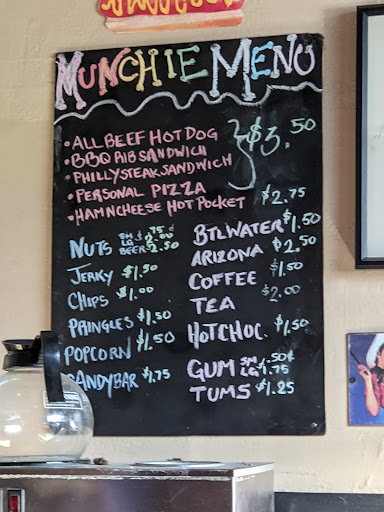 MUNCHIE MENU
• ALL BEEF HOT DOG
• BBQ RIB SANDWICH
• PHILLY STEAK SANDWICH
$3.50
• PERSONAL PIZZA
• HAM N CHEESE HOT POCKET $2.75
NUTS SM .75¢
LG 2.00
BEER 2.50
JERKY $1.50
CHIPS $1.00
PRINGLES $1.50
POPCORN $1.50
CANDYBAR $1.75
BTL WATER $1.50
ARIZONA $2.50
COFFEE $1.50
TEA $2.00
HOT CHOC. $1.50
GUM SM .50¢
LG $1.75
TUMS $1.25